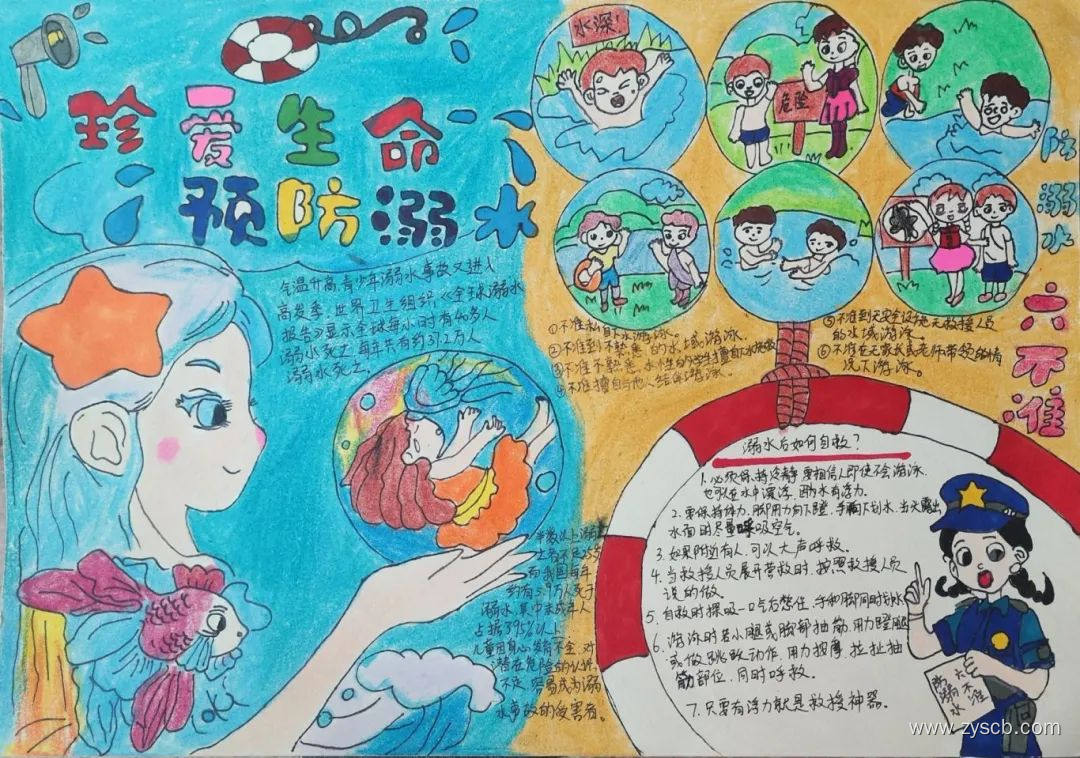 珍爱生命
预防溺水
气温升高,青少年溺水事故又进入
高发季,世界卫生组织《全球溺水
报告》显示全球每小时有40多人
溺水死亡,每年共有约37.2万人
溺水死亡。
半数以上溺
亡者不足25岁
而我国每年
约有5.9万人死于
溺水,其中未成年人
占据39.5%以上
儿童因身心发育不全,对
潜在危险的认识
不足,容易成为溺
水事故的受害者。
水深!
危险
防溺水
六不准
①不准私自下水游泳。
②不准到不熟悉的水域游泳。
③不准不熟悉水性的学生擅自下水施救
④不准擅自与他人结伴游泳。
⑤不准到无安全设施无救援人员
的水域游泳。
⑥不准在无家长或老师带领的情
况下游泳。
溺水后如何自救?
1.必须保持冷静,要相信人即使不会游泳,
也可以在水中漂浮,因为水有浮力。
2.要保持体力,脚用力向下蹬,手向下划水,当头露出
水面时尽量呼吸空气。
3.如果附近有人,可以大声呼救。
4.当救援人员展开营救时,按照救援人员
说的做。
5.自救时深吸一口气后憋住,手和脚同时划水
6.游泳时若小腿或脚部抽筋,用力蹬腿
或做跳跃动作,用力按摩、拉扯抽
筋部位,同时呼救。
7.只要有浮力就是救援神器。
防溺水
六不准
www.zyscb.com